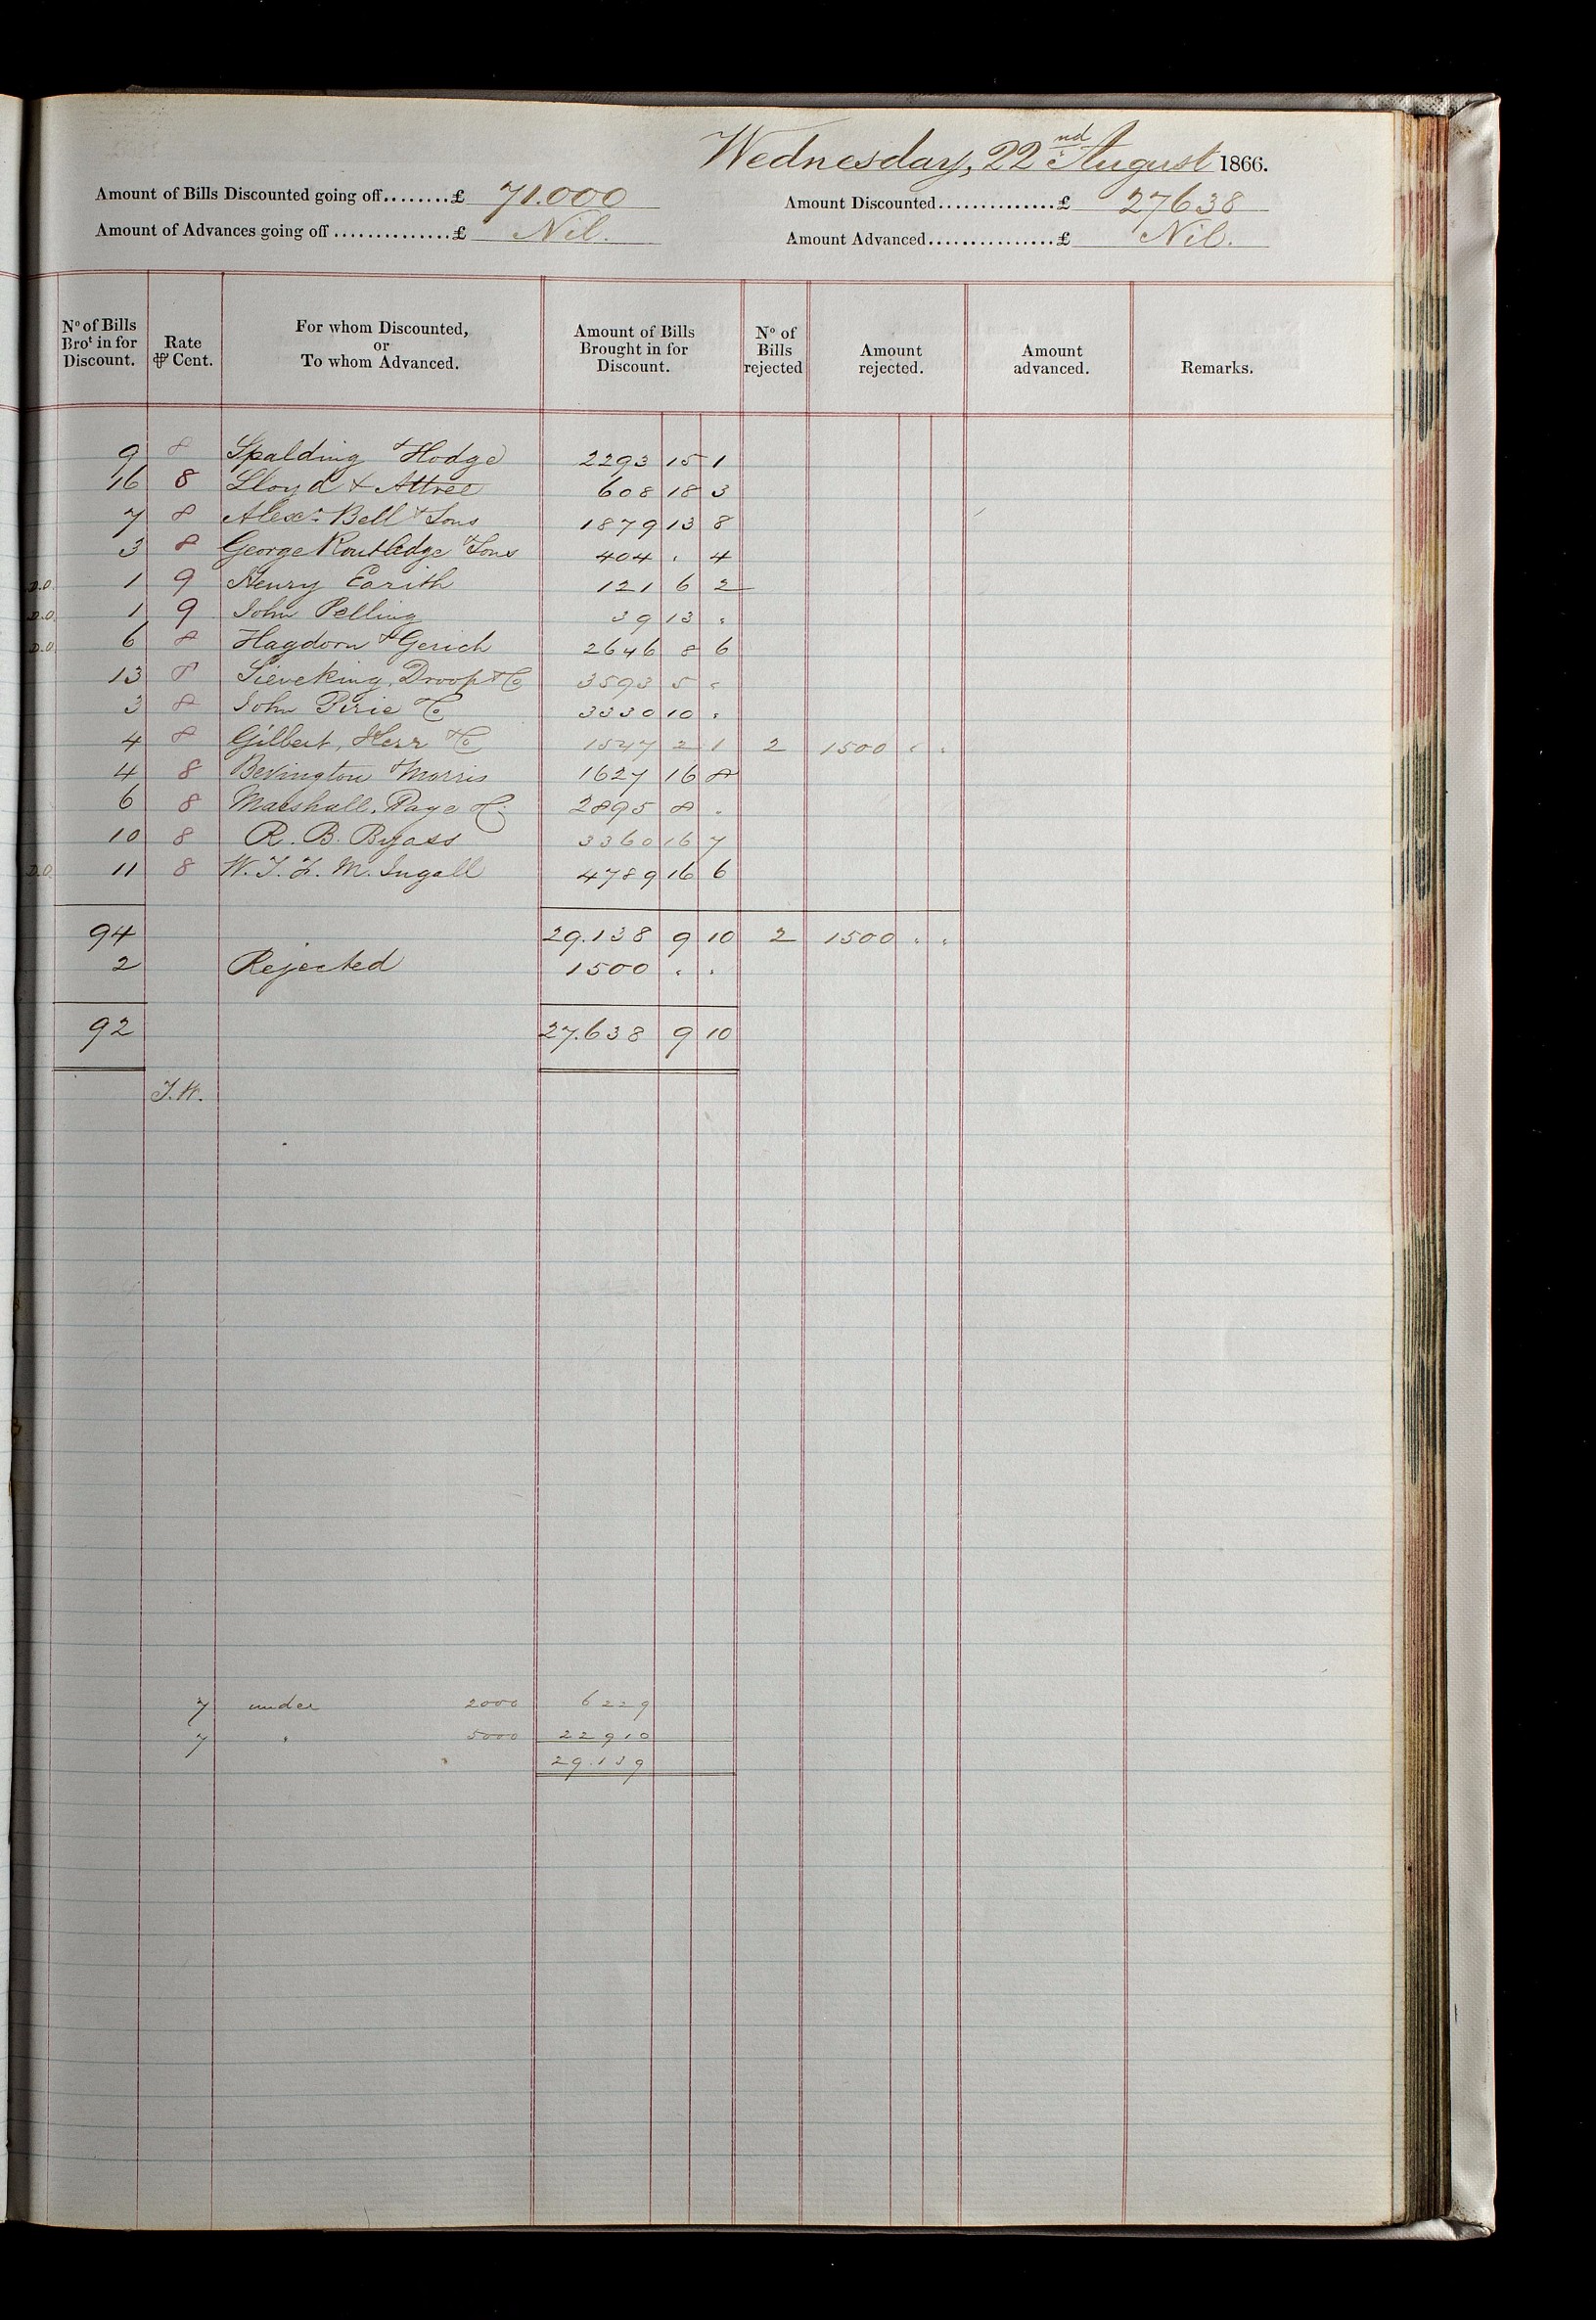 Wednesday, 22nd August 1866.
Amount of Bills Discounted going off........£ 71.000
Amount Discounted..............£ 27638
Amount of Advances going off..............£ Nil.
Amount Advanced...............£ Nil.
No of Bills Brot in for Discount. Rate ⅌ Cent. For whom Discounted, or To whom Advanced. Amount of Bills Brought in for Discount. No of Bills rejected Amount rejected. Amount advanced. Remarks.
9 8 Spalding & Hodge 2293 15 1
16 8 Lloyd & Attree 608 18 3
7 8 Alexr Bell & Sons 1879 13 8
3 8 George Routledge & Sons 404 . 4
D.O. 1 9 Henry Earith 121 6 2
D.O. 1 9 John Pelling 39 13 .
D.O. 6 8 Hagdorn & Gerich 2646 8 6
13 8 Sieveking, Droop & Co 3593 5 .
3 8 John Pirie & Co 3330 10 .
4 8 Gilbert, Kerr & Co 1547 2 1 2 1500 . .
4 8 Bevington & Morris 1627 16 8
6 8 Marshall, Page & Co 2895 8 .
10 8 R. B. Byass 3360 16 7
D.O. 11 8 W. T. & M. Ingall 4789 16 6
94 29.138 9 10 2 1500 . .
2 Rejected 1500 . .
92 27.638 9 10
7 under 2000 6229
7 " 5000 22910
29.139